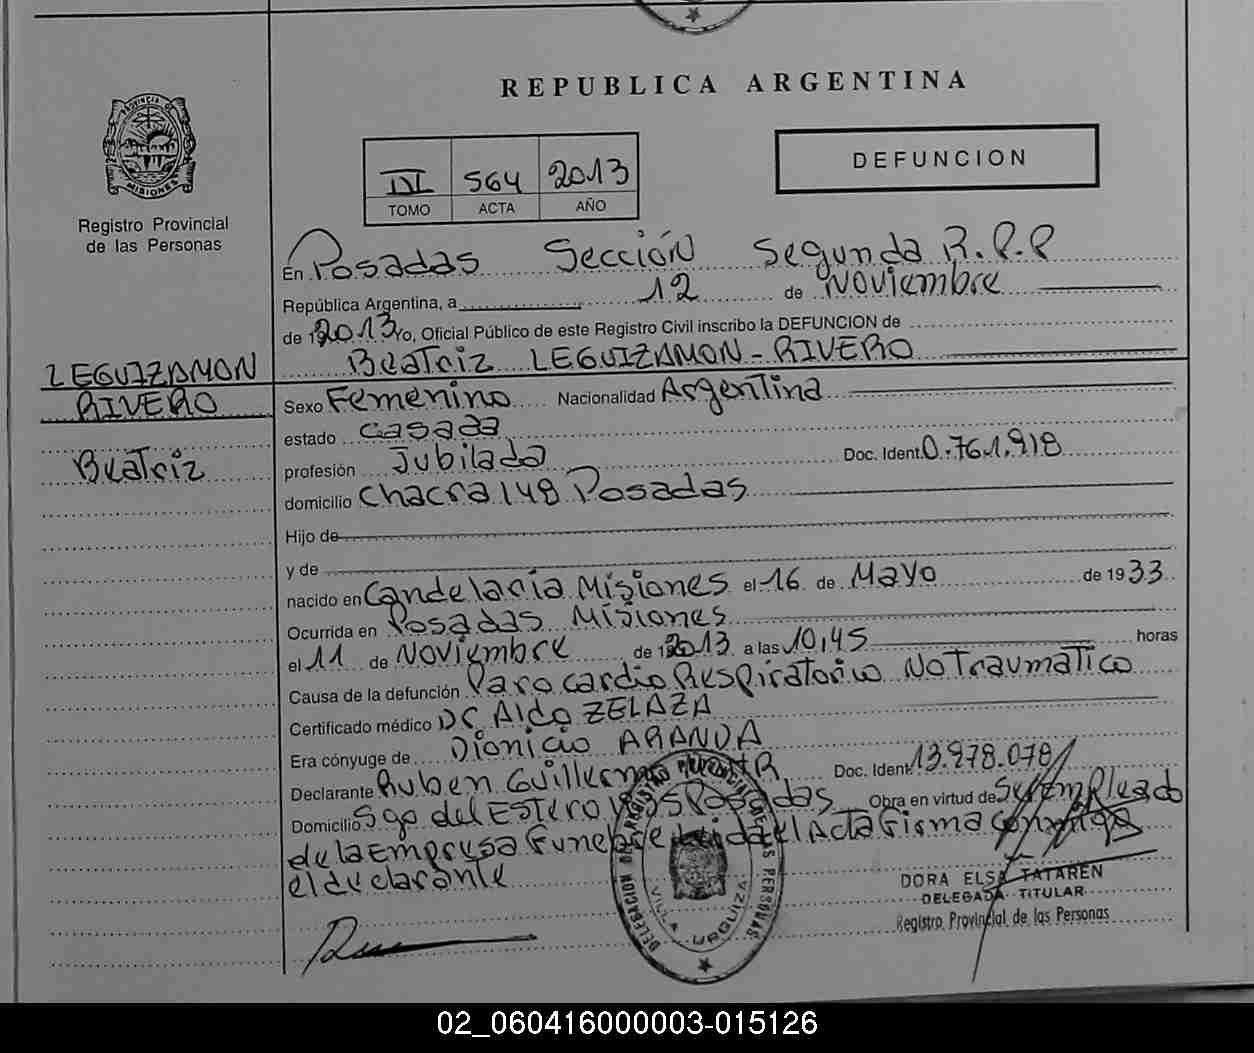 REPUBLICA ARGENTINA
PROVINCIA DE
MISIONES
Registro Provincial
de las Personas
III 564 2013
TOMO ACTA AÑO
DEFUNCION
En Posadas Sección Segunda R.P.P
República Argentina, a 12 de Noviembre
de 2013 Yo, Oficial Público de este Registro Civil inscribo la DEFUNCION de
Beatriz LEGUIZAMON - RIVERO
LEGUIZAMON
RIVERO
Beatriz
Sexo Femenino Nacionalidad Argentina
estado casada
profesión Jubilada Doc. Ident. 0.761.918
domicilio Chacra 148 Posadas
Hijo de
y de
nacido en Candelaria Misiones el 16 de Mayo de 1933
Ocurrida en Posadas Misiones
el 11 de Noviembre de 2013 a las 10,45 horas
Causa de la defunción Paro cardio Respiratorio No Traumatico
Certificado médico Dr Aldo ZELAZA
Era cónyuge de Dionicio ARANDA
Declarante Ruben Guillermo Doc. Ident. 13.978.078
Domicilio Sgo del ESTERO Posadas Obra en virtud de Ser empleado
de la Empresa Funebre Leida el Acta Firma conmigo
el declarante
DELEGACION
REGISTRO PROVINCIAL DE LAS PERSONAS
VILLA URQUIZA
DORA ELSA TATAREN
DELEGADA TITULAR
Registro Provincial de las Personas
02_060416000003-015126